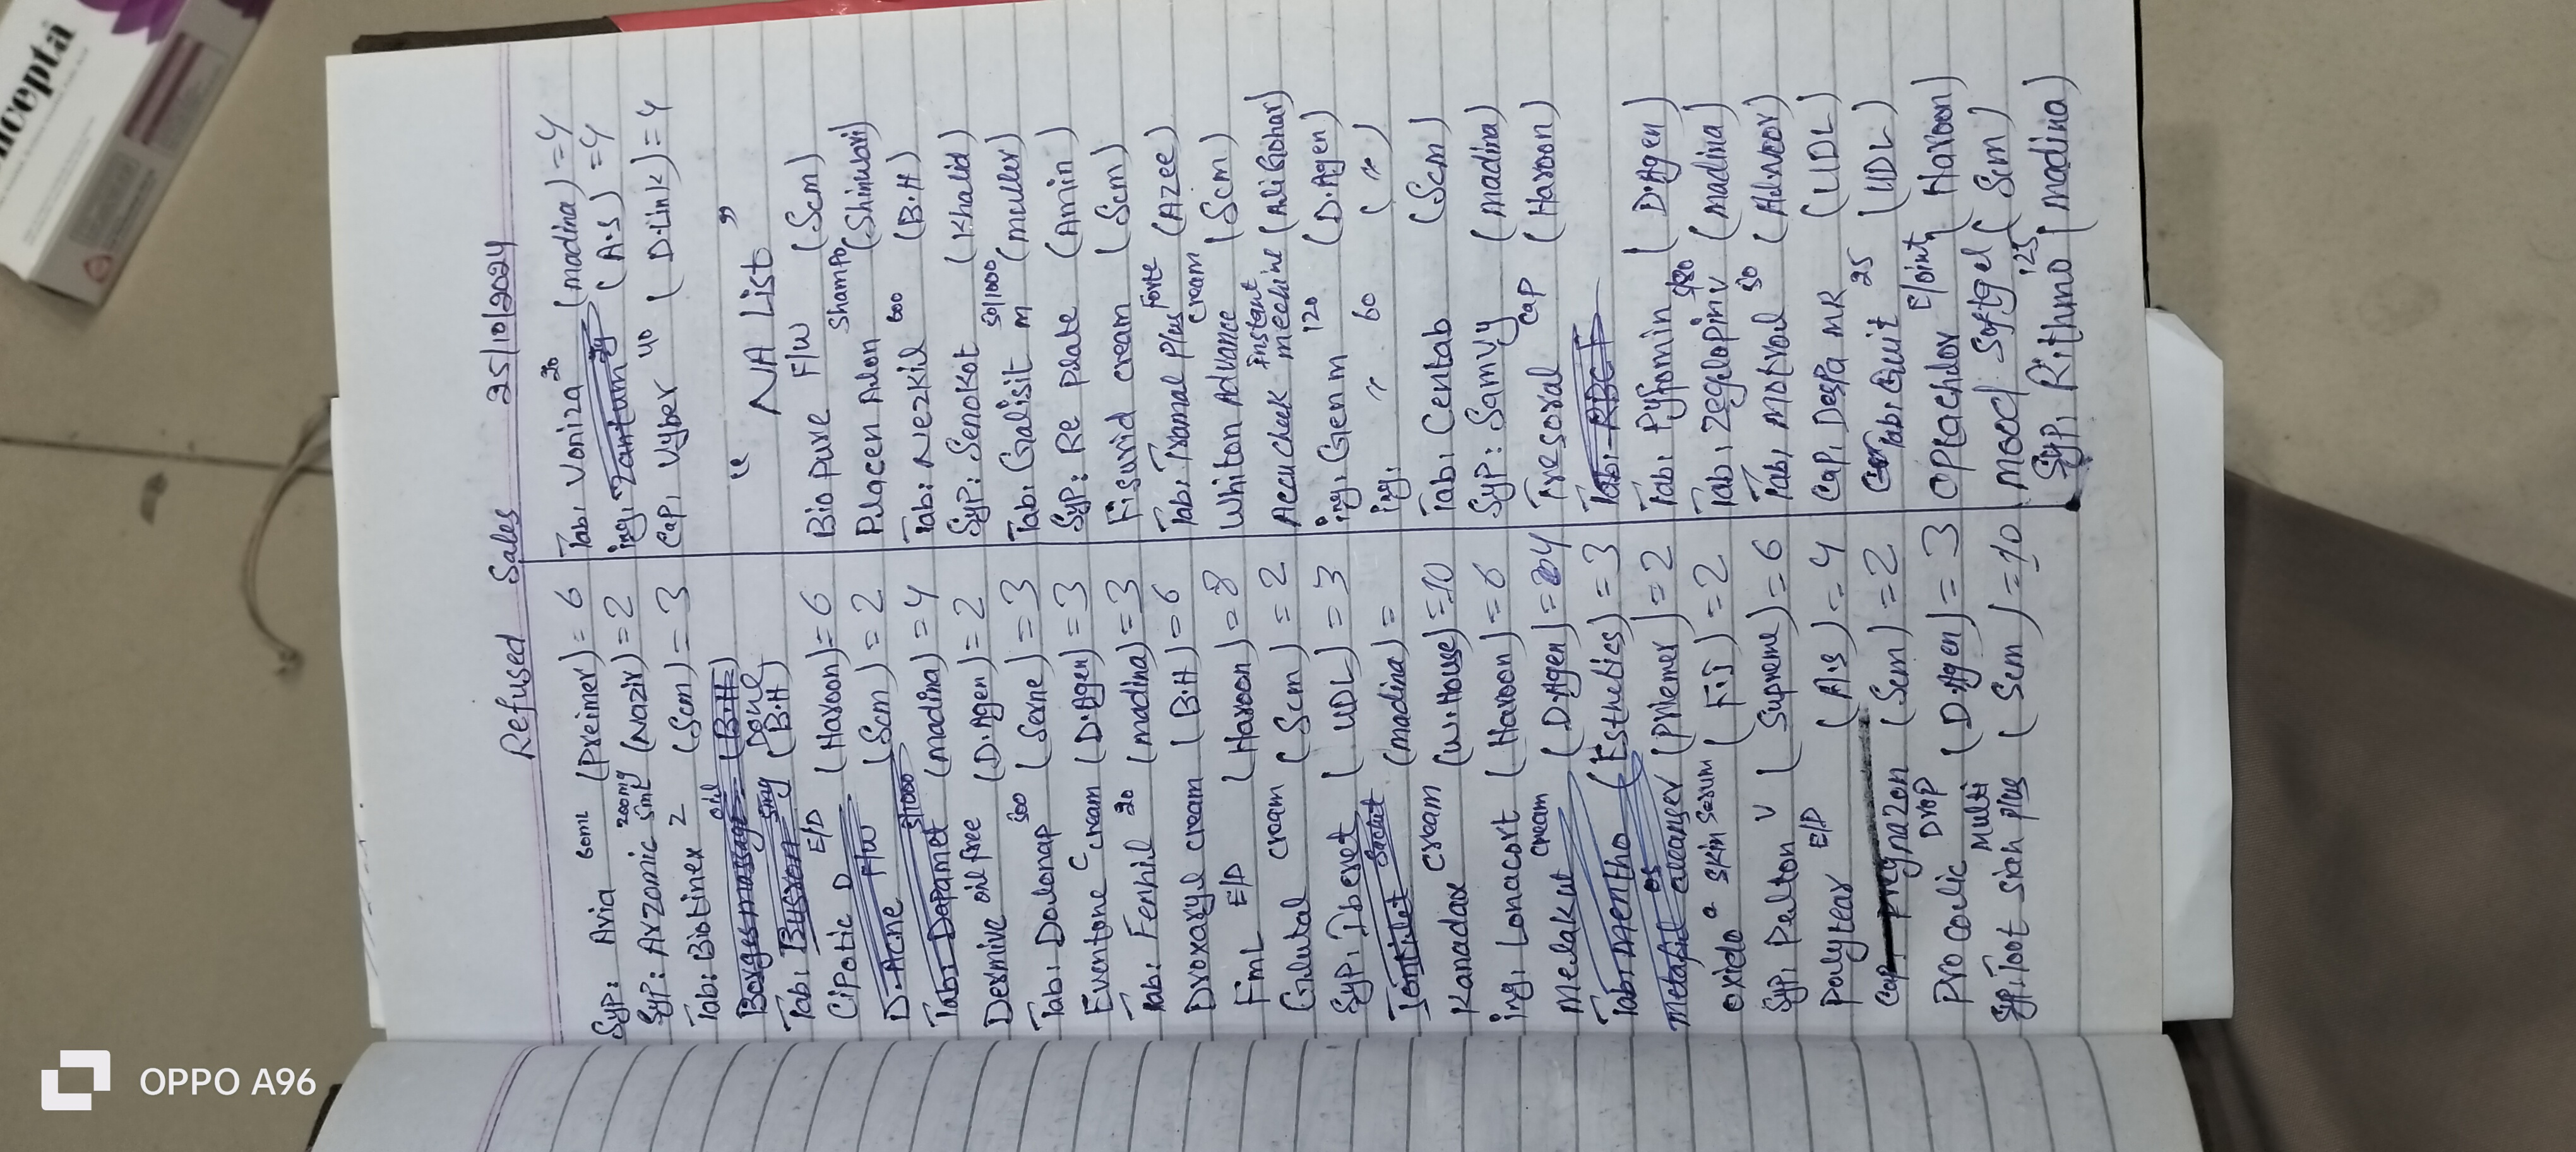 Refused Sales 25/10/2024
Syp: Avia 60ml (Preimer) = 6
Syp: Arzomic 200mg 5ml (Nazir) = 2
Tab: Biotinex 2 (Scm) = 3
Borges massage oil (B.H)
Done
Tab: Busron 5mg (B.H)
Cipotic D E/D (Haroon) = 6
D-Acne F/W (Scm) = 2
Tab: Dapamet 5/1000 (madina) = 4
Dermive oil free (D.Agen) = 2
Tab: Dolonap 500 (Serne) = 3
Eventone C cream (D.Agen) = 3
Tab: Femhil 20 (madina) = 3
Droxaxyl cream (B.H) = 6
Fml E/D (Haroon) = 8
Glulutal cream (Scm) = 2
Syp: Iberet (UDL) = 3
Sachet (madina) =
Kanadax cream (W.House) = 10
inj, Lonacort (Haroon) = 6
Melakut cream (D.Agen) = 4
Tab: Mentho (Esthetics) = 3
Metafil cleanser (Priemer) = 2
Oxido a skin serum (F.J) = 2
Syp, Pelton V (Supreme) = 6
Polytear E/D (A.S) = 4
Cap, Pregnazon (Scm) = 2
Procoulic Drop (D.Agen) = 3
Syp, Toot siah plus Multi (Scm) = 10
Tab, Voniza 20 (madina) = 4
inj, Zantum (A.S) = 4
Cap, Vyber 40 (D.Link) = 4
" NA List "
Bio pure F/W (Scm)
Placen Alon Shampo (Shinwari)
Tab: Nezkil 600 (B.H)
Syp: Senokot (Khalid)
Tab: Galisit M 50/1000 (muller)
Syp: Re Plate (Amin)
Fisurid cream (Scm)
Tab, Tramal Plus Forte (Azee)
Whiton Advance cream (Scm)
Accu chek instant mechine (Ali Gohar)
inj, Genm 120 (D.Agen)
inj, " 60 ( " )
Tab, Centab (Scm)
Syp: Samvy (madina)
Tresoral cap (Haroon)
Tab, Pyfomin (D.Agen)
Tab, Zegelopin V 5/80 (madina)
Tab, Motival 50 (Advisor)
Cap, Despa MR (UDL)
Tab, Gluit 25 (UDL)
Optachlor E/oint (Haroon)
Mocel softgel (Scm)
Syp, Rithmo 125 (madina)
OPPO A96